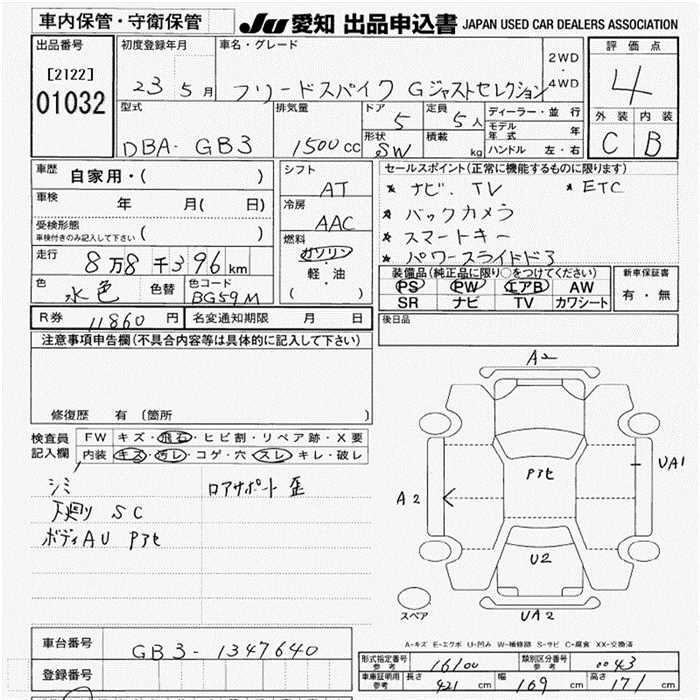 車内保管・守衛保管
JU 愛知 出品申込書 JAPAN USED CAR DEALERS ASSOCIATION
出品番号
[2122]
01032
初度登録年月
23 5 月
車名・グレード
フリードスパイク Gジャストセレクション
2WD
・
4WD
評価点
4
外装 内装
C B
型式
DBA- GB3
排気量
1500 cc
ドア
5
定員
5 人
形状
SW
積載
kg
ディーラー・並行
モデル年式 年
ハンドル 左・右
車歴
自家用・( )
車検
年 月( 日)
受検形態
車検付きのみ記入して下さい ( )
走行
8万8千396km
色
水色
色替
色コード
BG59M
シフト
AT
冷房
AAC
燃料
ガソリン
・
軽・油
( )
セールスポイント(正常に機能するものに限ります)
* ナビ、TV * ETC
* バックカメラ
* スマートキー
* パワースライドド3
装備品(純正品に限り○をつけてください)
PS PW エアB AW
SR ナビ TV カワシート
新車保証書
有・無
R券 11860 円
名変通知期限 月 日
後日品
注意事項申告欄(不具合内容等は具体的に記入して下さい)
修復歴 有 〔箇所 〕
検査員
記入欄
FW キズ・飛石・ヒビ割・リペア跡・X要
内装 キズ・汚レ・コゲ・穴・スレ・キレ・破レ
シミ
下廻り SC
ボディAU Pアセ
ロアサポート 歪
A2
Pアセ
UA1
A2
U2
UA2
スペア
A-キズ E-エクボ U-凹み W-補修跡 S-サビ C-腐食 XX-交換済
車台番号
GB3-1347640
登録番号
形式指定番号
参考
16100
類別区分番号
参考
0043
車庫証明用
参考
長さ 421 cm
幅 169 cm
高さ 171 cm